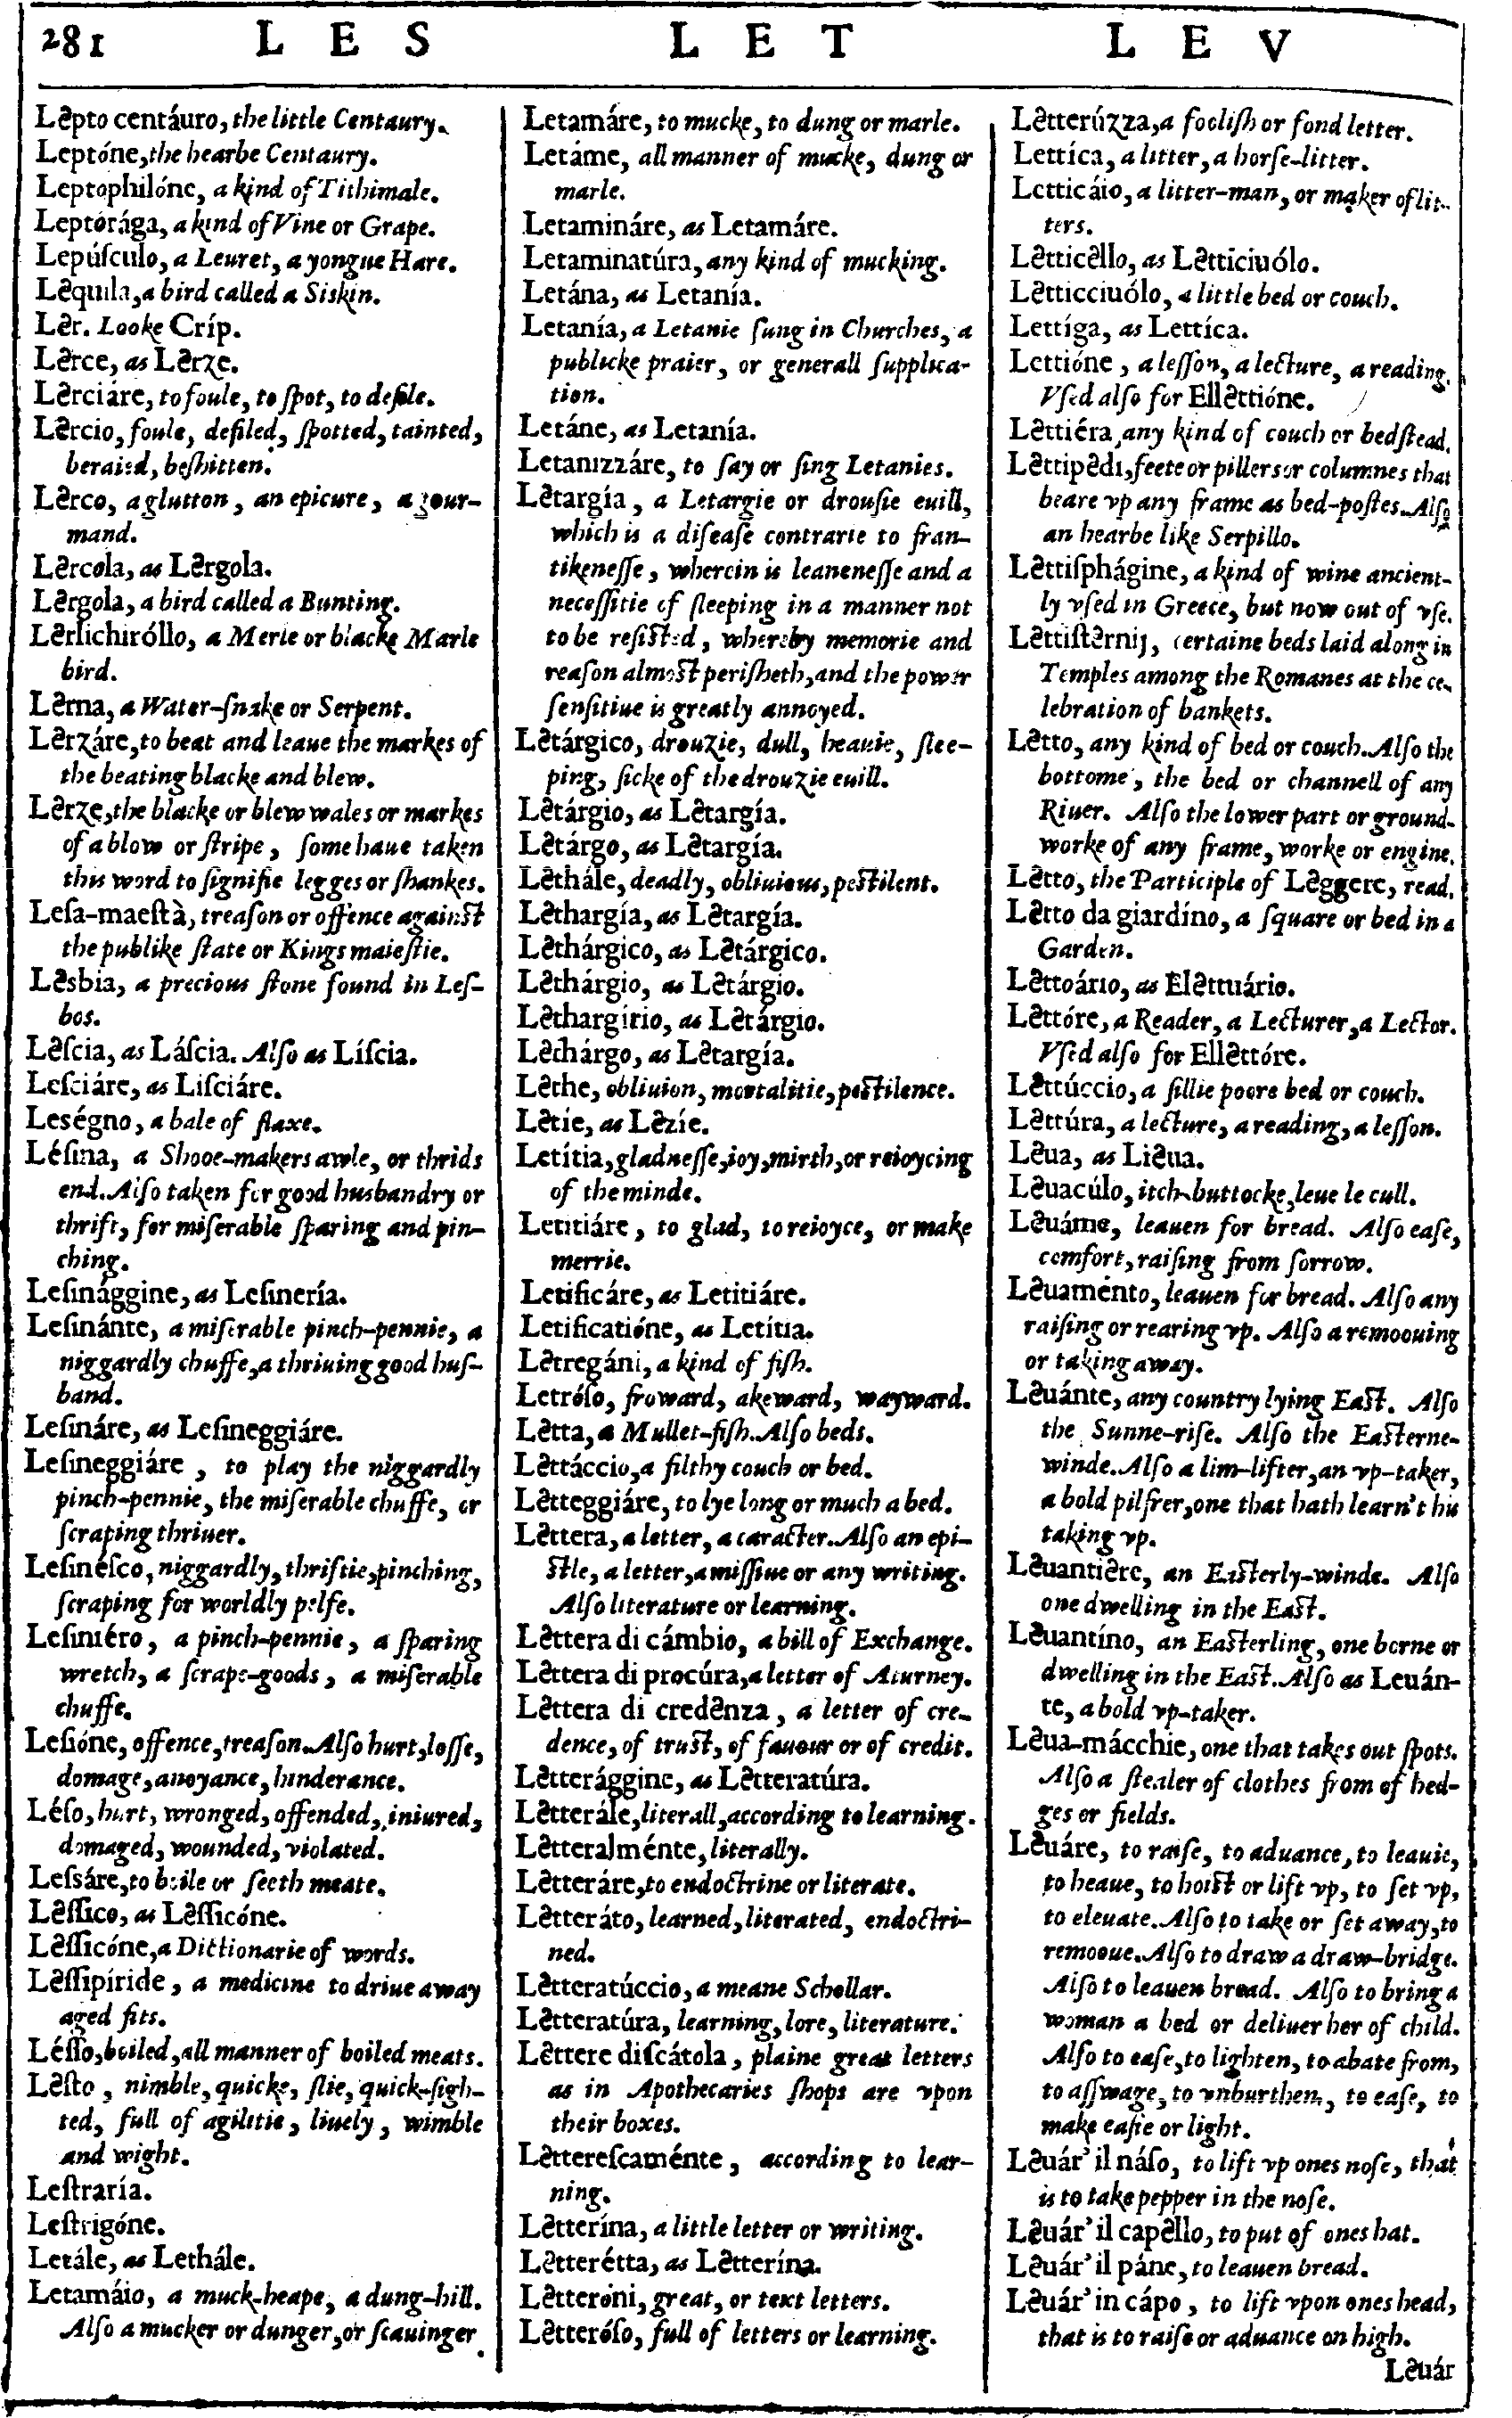 281 LES LET LEV
Lepto centáuro, the little Centaury.
Leptóne, the hearbe Centaury.
Leptophilóne, a kind of Tithimale.
Leptórága, a kind of Vine or Grape.
Lepúſculo, a Leuret, a yongue Hare.
Lequila, a bird called a Siskin.
Ler. Looke Críp.
Lerce, as Lerze.
Lerciáre, to foule, to ſpot, to defile.
Lercio, foule, defiled, ſpotted, tainted,
beraied, beſhitten.
Lerco, a glutton, an epicure, a gour-
mand.
Lercola, as Lergola.
Lergola, a bird called a Bunting.
Lerlichiróllo, a Merle or blacke Marle
bird.
Lerna, a Water-ſnake or Serpent.
Lerzáre, to beat and leaue the markes of
the beating blacke and blew.
Lerze, the blacke or blew wales or markes
of a blow or ſtripe, ſome haue taken
this word to ſignifie legges or ſhankes.
Leſa-maeſtà, treaſon or offence againſt
the publike ſtate or Kings maieſtie.
Lesbia, a precious ſtone found in Leſ-
bos.
Leſcia, as Láſcia. Alſo as Líſcia.
Leſciáre, as Liſciáre.
Leségno, a bale of flaxe.
Léſina, a Shooe-makers awle, or thrids
end. Alſo taken for good husbandry or
thrift, for miſerable ſparing and pin-
ching.
Leſinággine, as Leſinería.
Leſinánte, a miſerable pinch-pennie, a
niggardly chuffe, a thriuing good huſ-
band.
Leſináre, as Leſineggiáre.
Leſineggiáre, to play the niggardly
pinch-pennie, the miſerable chuffe, or
ſcraping thriuer.
Leſinéſco, niggardly, thriftie, pinching,
ſcraping for worldly pelfe.
Leſiniéro, a pinch-pennie, a ſparing
wretch, a ſcrape-goods, a miſerable
chuffe.
Leſióne, offence, treaſon. Alſo hurt, loſſe,
domage, anoyance, hinderance.
Léſo, hurt, wronged, offended, iniured,
domaged, wounded, violated.
Leſsáre, to boile or ſeeth meate.
Leſſico, as Leſſicóne.
Leſſicóne, a Dictionarie of words.
Leſſipíride, a medicine to driue away
aged fits.
Léſſo, boiled, all manner of boiled meats.
Leſto, nimble, quicke, ſlie, quick-ſigh-
ted, full of agilitie, liuely, wimble
and wight.
Leſtraría.
Leſtrigóne.
Letále, as Lethále.
Letamáio, a muck-heape, a dung-hill.
Alſo a mucker or dunger, or ſcauinger
Letamáre, to mucke, to dung or marle.
Letáme, all manner of mucke, dung or
marle.
Letamináre, as Letamáre.
Letaminatúra, any kind of mucking.
Letána, as Letanía.
Letanía, a Letanie ſung in Churches, a
publicke praier, or generall ſupplica-
tion.
Letáne, as Letanía.
Letanizzáre, to ſay or ſing Letanies.
Letargía, a Letargie or drouſie euill,
which is a diſeaſe contrarie to fran-
tikeneſſe, wherein is leaneneſſe and a
neceſſitie of ſleeping in a manner not
to be reſiſted, whereby memorie and
reaſon almoſt periſheth, and the power
ſenſitiue is greatly annoyed.
Letárgico, drouzie, dull, heauie, ſlee-
ping, ſicke of the drouzie euill.
Letárgio, as Letargía.
Letárgo, as Letargía.
Lethále, deadly, obliuious, peſtilent.
Lethargía, as Letargía.
Lethárgico, as Letárgico.
Lethárgio, as Letárgio.
Lethargírio, as Letárgio.
Lethárgo, as Letargía.
Lethe, obliuion, mortalitie, peſtilence.
Letie, as Lezíe.
Letítia, gladneſſe, ioy, mirth, or reioycing
of the minde.
Letitiáre, to glad, to reioyce, or make
merrie.
Letificáre, as Letitiáre.
Letificatióne, as Letítia.
Letregáni, a kind of fiſh.
Letróſo, froward, akeward, wayward.
Letta, a Mullet-fiſh. Alſo beds.
Lettáccio, a filthy couch or bed.
Letteggiáre, to lye long or much a bed.
Lettera, a letter, a caracter. Alſo an epi-
ſtle, a letter, a miſſiue or any writing.
Alſo literature or learning.
Lettera di cámbio, a bill of Exchange.
Lettera di procúra, a letter of Aturney.
Lettera di credenza, a letter of cre-
dence, of truſt, of fauour or of credit.
Letterággine, as Letteratúra.
Letterále, literall, according to learning.
Letteralménte, literally.
Letteráre, to endoctrine or literate.
Letteráto, learned, literated, endoctri-
ned.
Letteratúccio, a meane Schollar.
Letteratúra, learning, lore, literature.
Lettere diſcátola, plaine great letters
as in Apothecaries ſhops are vpon
their boxes.
Lettereſcaménte, according to lear-
ning.
Letterína, a little letter or writing.
Letterétta, as Letterína.
Letteróni, great, or text letters.
Letteróſo, full of letters or learning.
Letterúzza, a fooliſh or fond letter.
Lettíca, a litter, a horſe-litter.
Letticáio, a litter-man, or maker of lit-
ters.
Letticello, as Letticiuólo.
Letticciuólo, a little bed or couch.
Lettíga, as Lettíca.
Lettióne, a leſſon, a lecture, a reading.
Vſed alſo for Ellettióne.
Lettiéra, any kind of couch or bedſtead.
Lettipedi, feete or pillers or columnes that
beare vp any frame as bed-poſtes. Alſo
an hearbe like Serpillo.
Lettiſphágine, a kind of wine ancient-
ly vſed in Greece, but now out of vſe.
Lettiſternij, certaine beds laid along in
Temples among the Romanes at the ce-
lebration of bankets.
Letto, any kind of bed or couch. Alſo the
bottome, the bed or channell of any
Riuer. Alſo the lower part or ground-
worke of any frame, worke or engine.
Letto, the Participle of Leggere, read.
Letto da giardíno, a ſquare or bed in a
Garden.
Lettoário, as Elettuário.
Lettóre, a Reader, a Lecturer, a Lector.
Vſed alſo for Ellettóre.
Lettúccio, a ſillie poore bed or couch.
Lettúra, a lecture, a reading, a leſſon.
Leua, as Lieua.
Leuacúlo, itch-buttocke, leue le cull.
Leuáme, leauen for bread. Alſo eaſe,
comfort, raiſing from ſorrow.
Leuaménto, leauen for bread. Alſo any
raiſing or rearing vp. Alſo a remoouing
or taking away.
Leuánte, any country lying Eaſt. Alſo
the Sunne-riſe. Alſo the Eaſterne-
winde. Alſo a lim-lifter, an vp-taker,
a bold pilfrer, one that hath learn't his
taking vp.
Leuantiere, an Eaſterly-winde. Alſo
one dwelling in the Eaſt.
Leuantíno, an Eaſterling, one borne or
dwelling in the Eaſt. Alſo as Leuán-
te, a bold vp-taker.
Leua-mácchie, one that takes out ſpots.
Alſo a ſtealer of clothes from of hed-
ges or fields.
Leuáre, to raiſe, to aduance, to leauie,
to heaue, to hoiſt or lift vp, to ſet vp,
to eleuate. Alſo to take or ſet away, to
remooue. Alſo to draw a draw-bridge.
Alſo to leauen bread. Alſo to bring a
woman a bed or deliuer her of child.
Alſo to eaſe, to lighten, to abate from,
to aſſwage, to vnburthen, to eaſe, to
make eaſie or light.
Leuár' il náſo, to lift vp ones noſe, that
is to take pepper in the noſe.
Leuár' il capello, to put of ones hat.
Leuár' il páne, to leauen bread.
Leuár' in cápo, to lift vpon ones head,
that is to raiſe or aduance on high.
Leuár